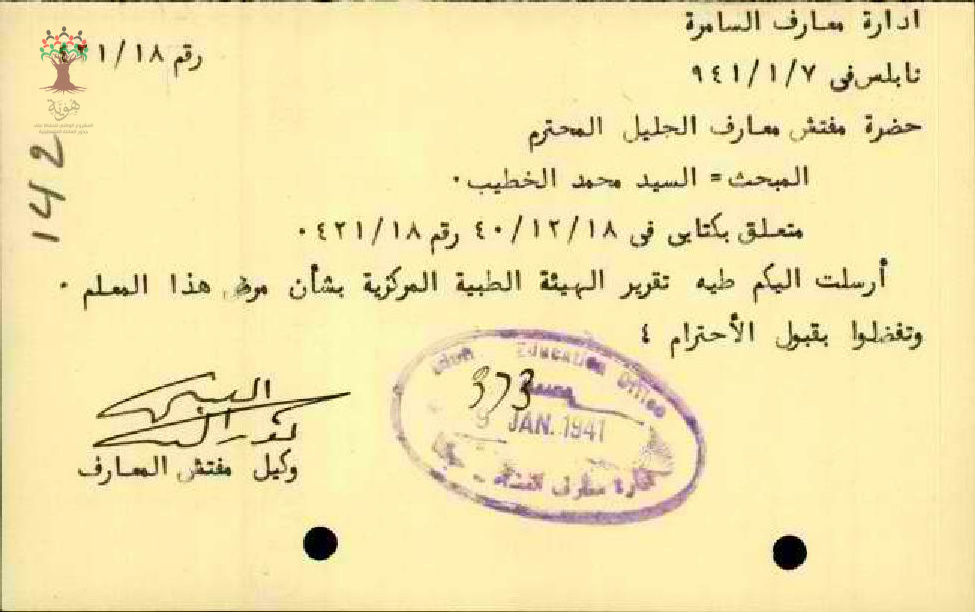 ادارة معارف السامرة
رقم ٤٢١/١٨
نابلس فى ٩٤١/١/٧
حضرة مفتش معارف الجليل المحترم
المبحث= السيد محمد الخطيب٠
متعلق بكتابى فى ٤٠/١٢/١٨ رقم ٤٢١/١٨٠
أرسلت اليكم طيه تقرير الهيئة الطبية المركزية بشأن مرض هذا المعلم ٠
وتفضلوا بقبول الأحترام ؛
وكيل مفتش المعارف
Education Office
373
9 JAN. 1941
ادارة معارف
142
هوية